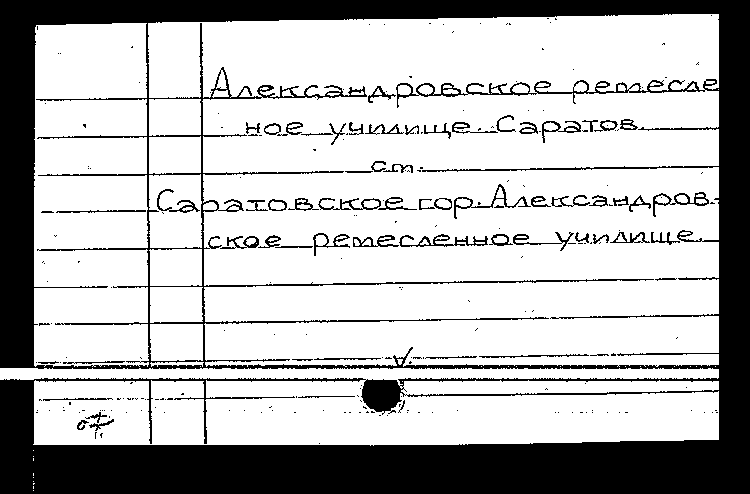 Александровское ремесле
ное училище. Саратов.
см.
Саратовское гор. Александров-
ское ремесленное училище.